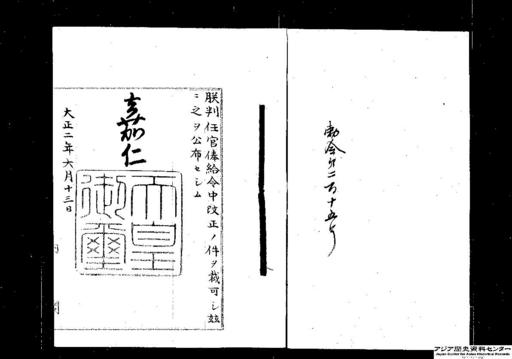 勅令第二百十五号
朕判任官俸給令中改正ノ件ヲ裁可シ茲
ニ之ヲ公布セシム
嘉仁
天皇
御璽
大正二年六月十三日
内閣
アジア歴史資料センター
Japan Center for Asian Historical Records